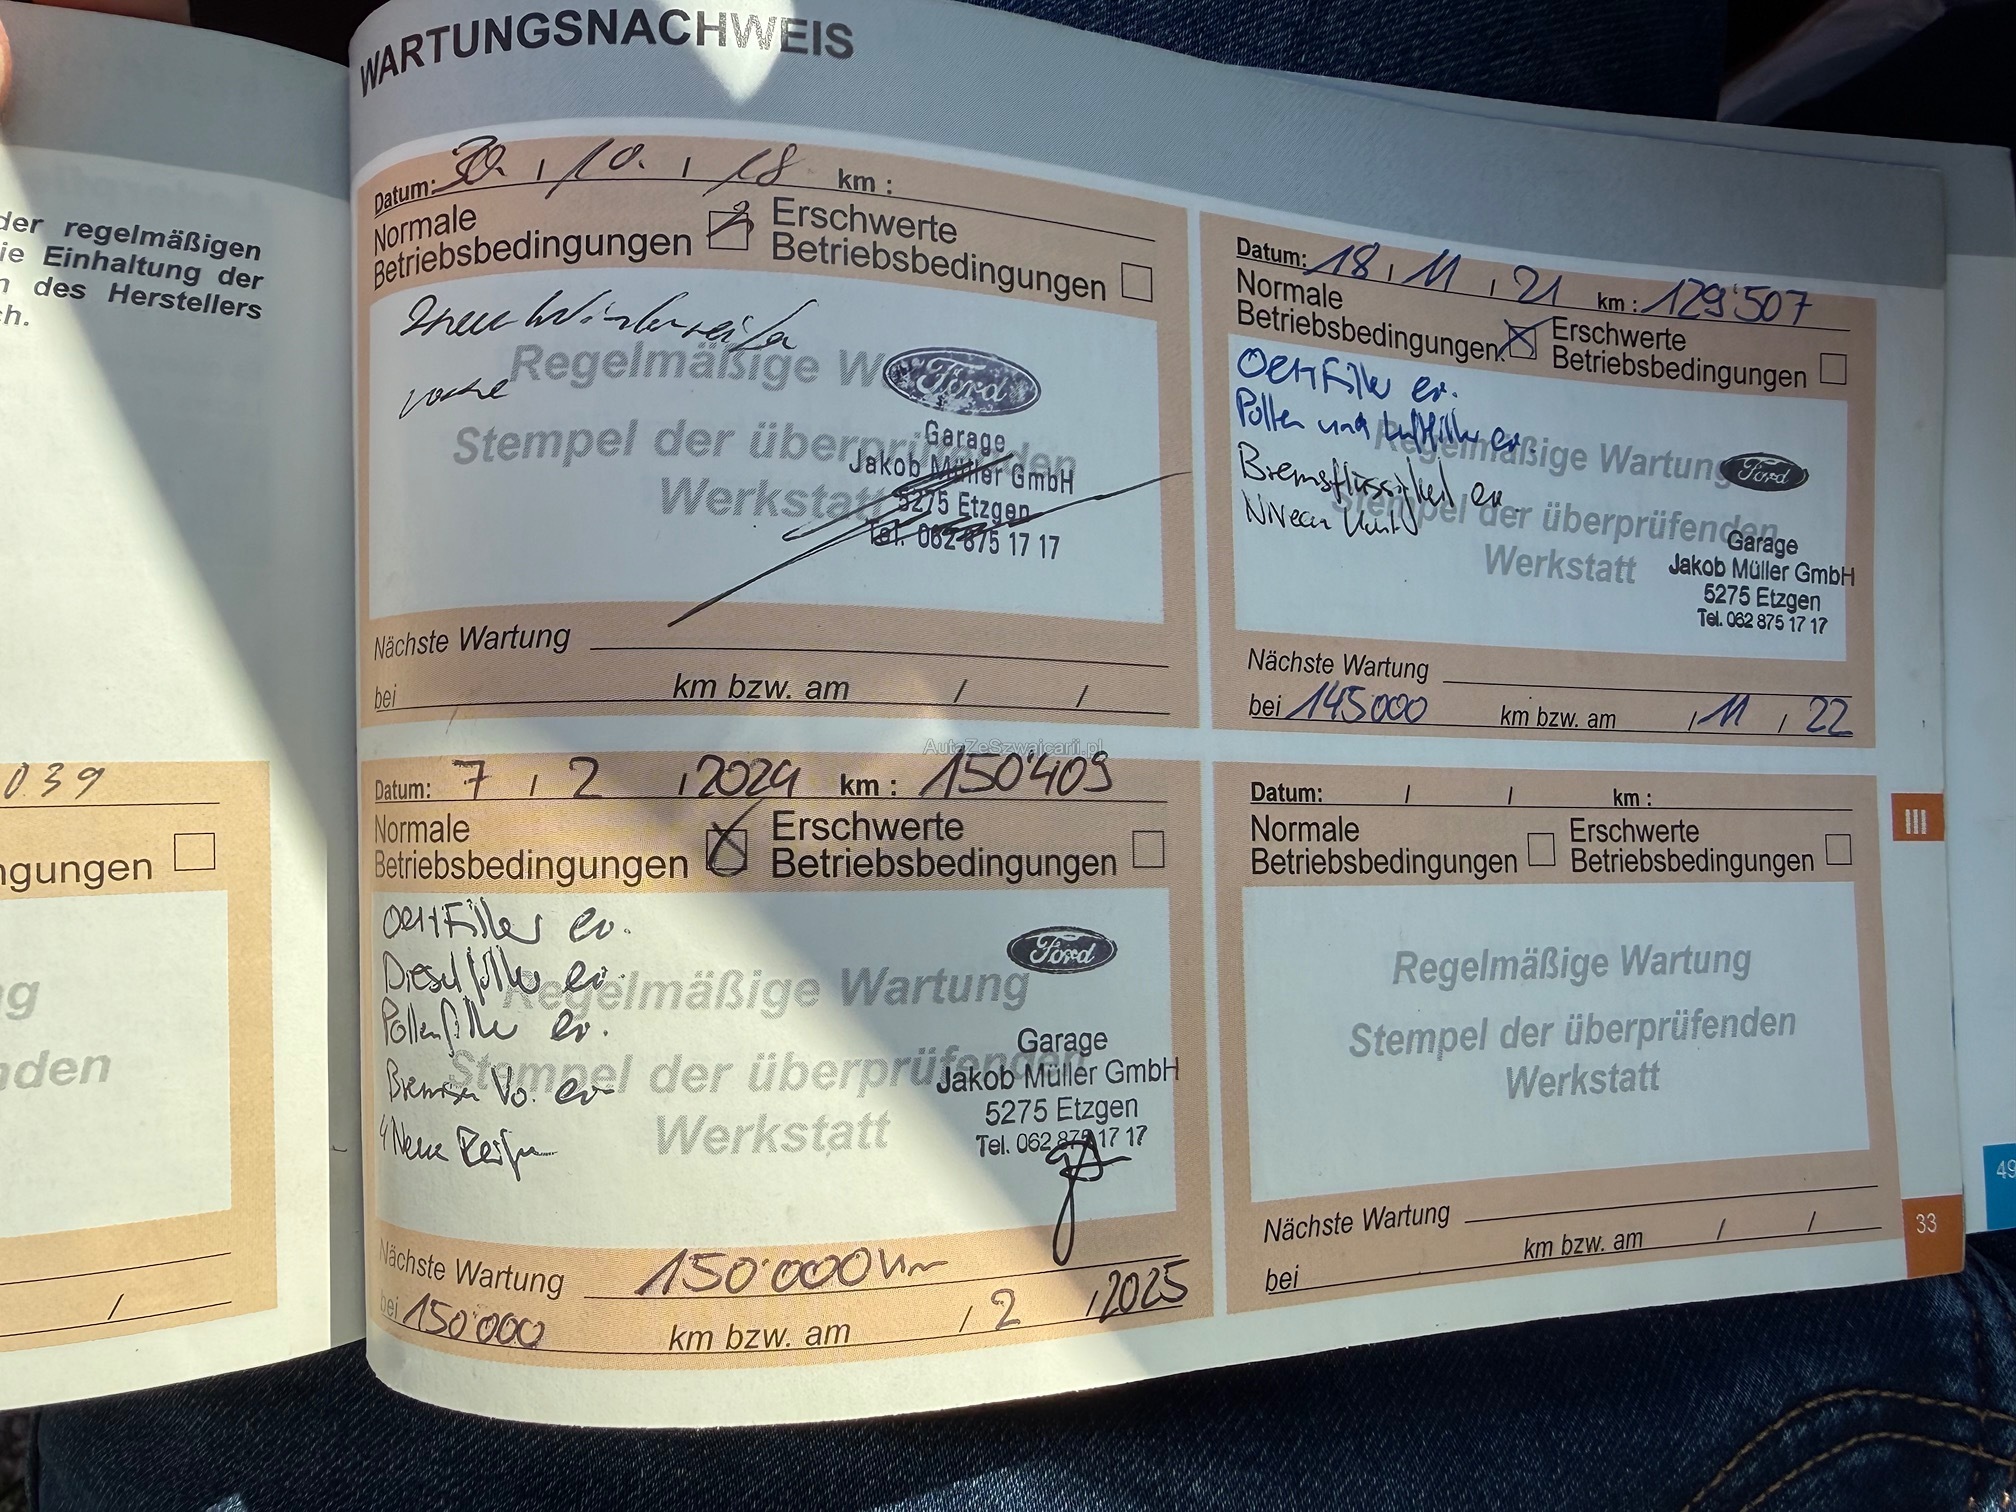 WARTUNGSNACHWEIS
der regelmäßigen
ie Einhaltung der
des Herstellers
ch.
039
ngungen
ng
nden
/
Datum: 30. / 10. / 18 km :
Normale Betriebsbedingungen
Erschwerte Betriebsbedingungen
Winterreifen
Regelmäßige W
Stempel der überprüfenden
Werkstatt
Ford
Garage
Jakob Müller GmbH
5275 Etzgen
Tel. 062 875 17 17
Nächste Wartung
bei km bzw. am / /
Datum: 18 / 11 / 21 km : 129'507
Normale Betriebsbedingungen
Erschwerte Betriebsbedingungen
Oel+Filter er.
Pollen und Luftfilter er.
Bremsflüssigkeit er.
Regelmäßige Wartung
Stempel der überprüfenden
Werkstatt
Ford
Garage
Jakob Müller GmbH
5275 Etzgen
Tel. 062 875 17 17
Nächste Wartung
bei 145000 km bzw. am / 11 / 22
AutaZeSzwajcarii.pl
Datum: 7 / 2 / 2024 km : 150'409
Normale Betriebsbedingungen
Erschwerte Betriebsbedingungen
Oel+Filter er.
Dieselfilter er.
Pollenfilter er.
Bremsen Vo. er.
4 Neue Reifen
Regelmäßige Wartung
Stempel der überprüfenden
Werkstatt
Ford
Garage
Jakob Müller GmbH
5275 Etzgen
Tel. 062 875 17 17
Nächste Wartung 150'000 km
bei 150'000 km bzw. am / 2 / 2025
Datum: / / km :
Normale Betriebsbedingungen
Erschwerte Betriebsbedingungen
Regelmäßige Wartung
Stempel der überprüfenden
Werkstatt
Nächste Wartung
bei km bzw. am / /
III
49
33